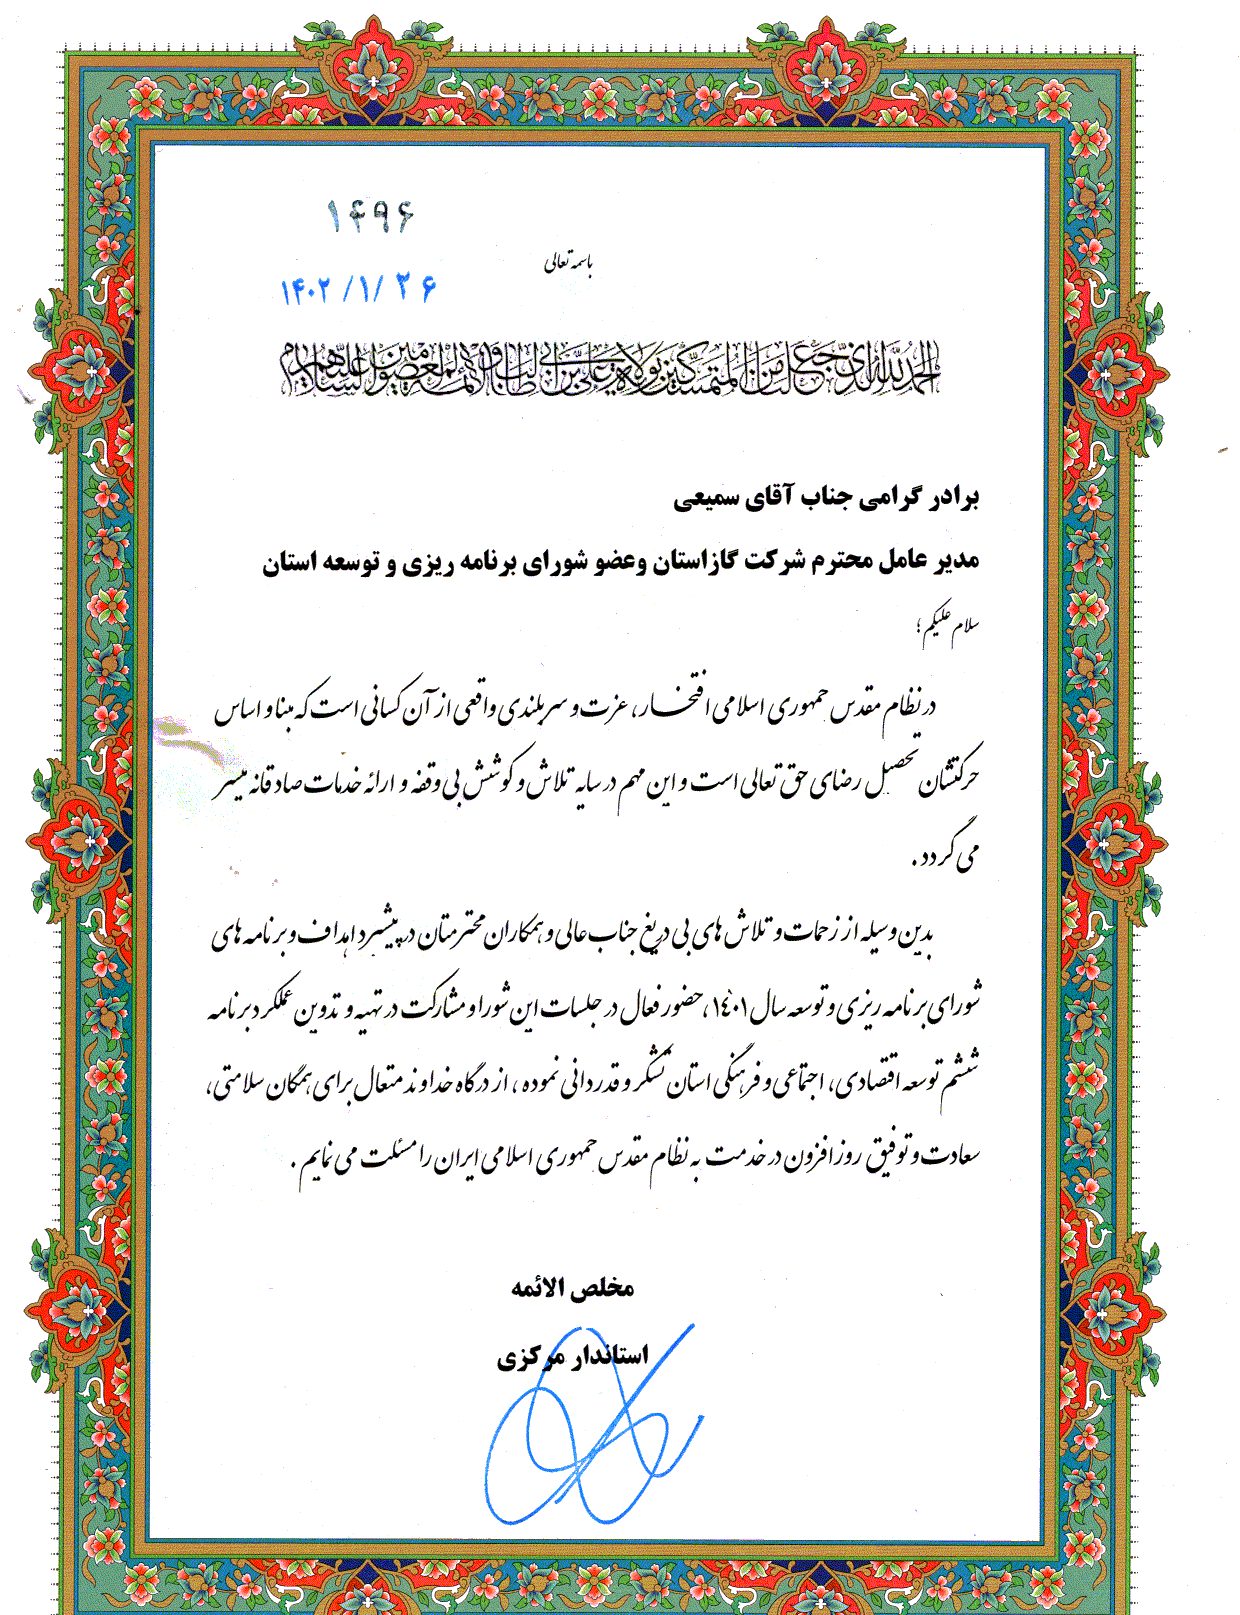 ۱۴۹۶
باسمه تعالی
۱۴۰۲/۱/۲۶
الحمدلله الذی جعلنا من المتمسکین بولایة علی بن ابی طالب و الائمة المعصومین علیهم السلام
برادر گرامی جناب آقای سمیعی
مدیر عامل محترم شرکت گازاستان وعضو شورای برنامه ریزی و توسعه استان
سلام علیکم؛
در نظام مقدس جمهوری اسلامی افتخار، عزت و سربلندی واقعی از آن کسانی است که مبنا و اساس
حرکتشان تحصیل رضای حق تعالی است و این مهم در سایه تلاش و کوشش بی وقفه و ارائه خدمات صادقانه میسر
می گردد.
بدین وسیله از زحمات و تلاش های بی دریغ جناب عالی و همکاران محترمتان در پیشبرد اهداف و برنامه های
شورای برنامه ریزی و توسعه سال ۱۴۰۱، حضور فعال در جلسات این شورا و مشارکت در تهیه و تدوین عملکرد برنامه
ششم توسعه اقتصادی، اجتماعی و فرهنگی استان تشکر و قدردانی نموده، از درگاه خداوند متعال برای همگان سلامتی،
سعادت و توفیق روز افزون در خدمت به نظام مقدس جمهوری اسلامی ایران را مسئلت می نمایم.
مخلص الائمه
استاندار مرکزی